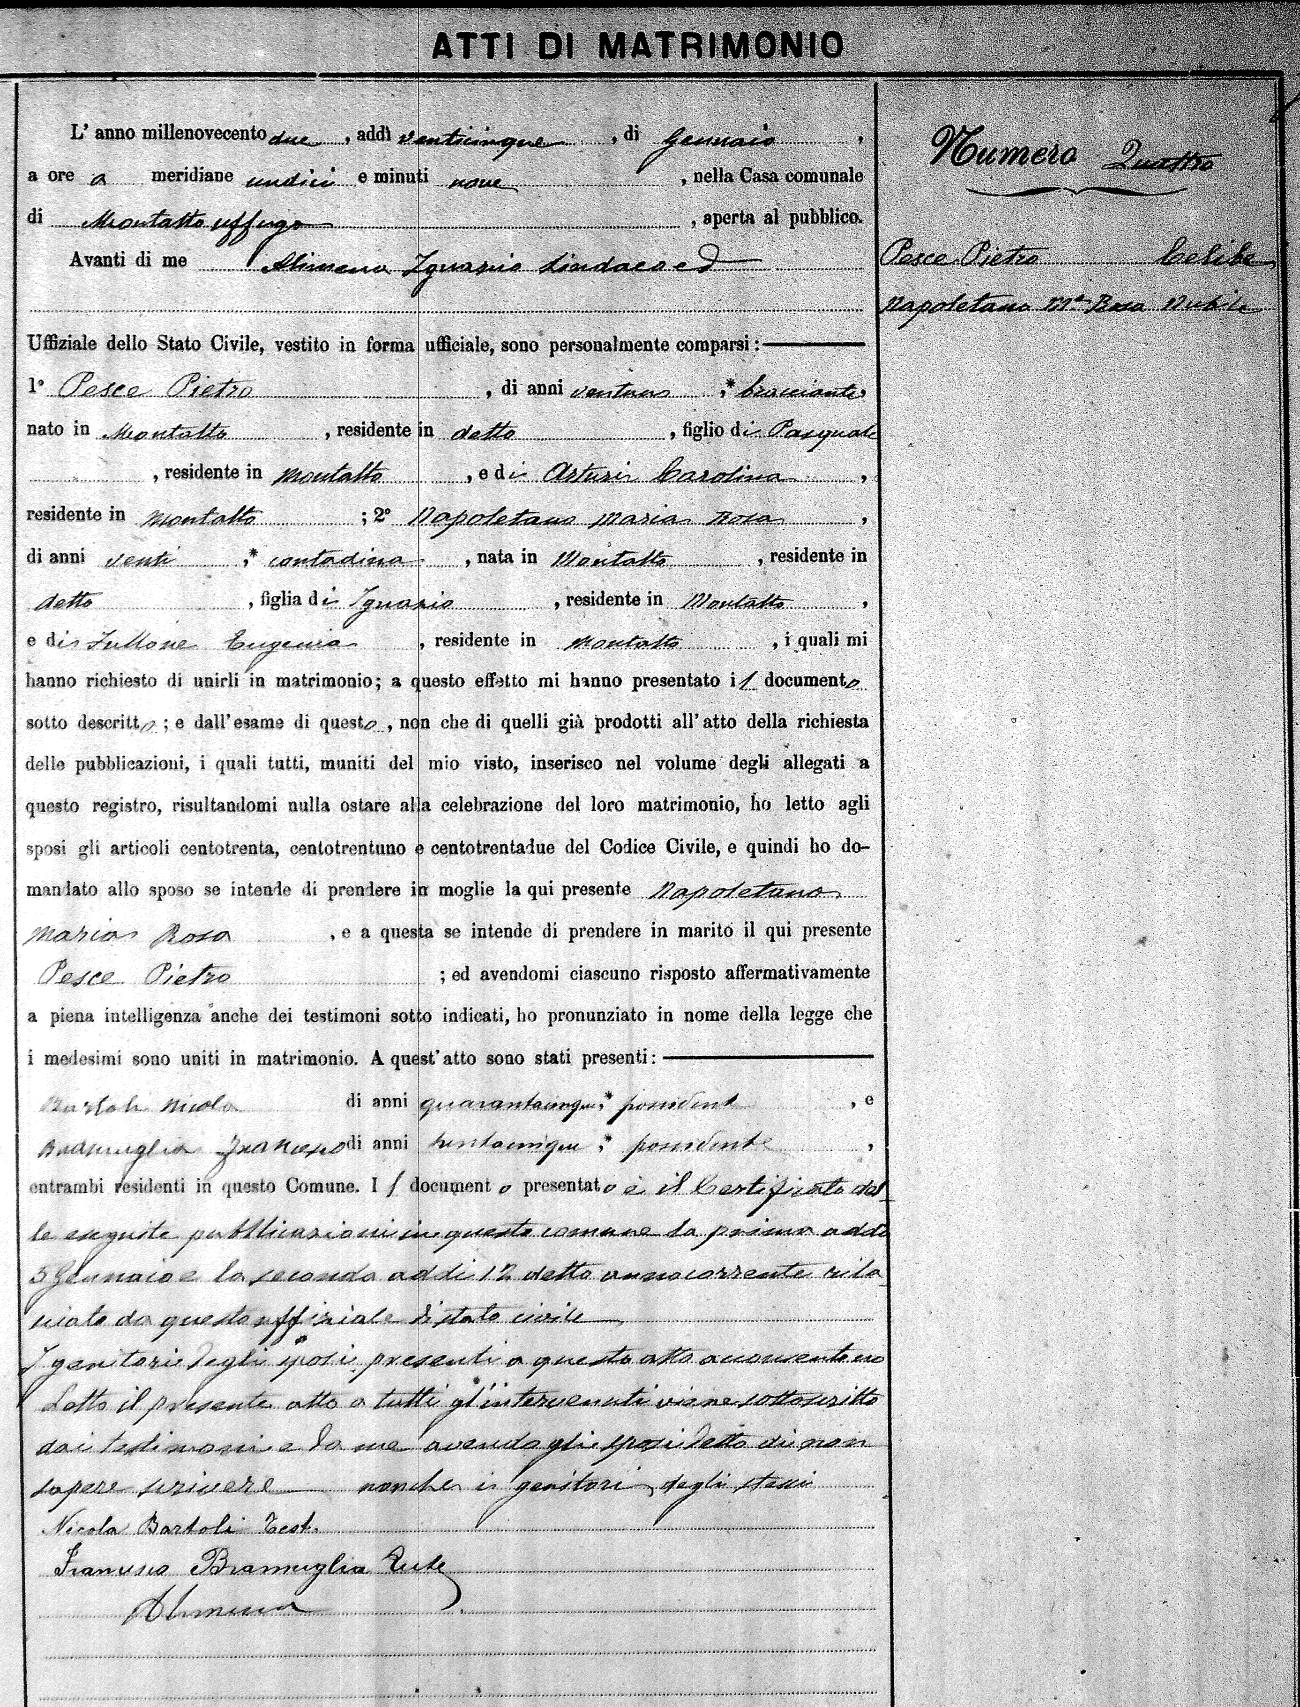 ATTI DI MATRIMONIO
L' anno millenovecento due, addì venticinque, di Gennaio,
a ore a meridiane undici e minuti nove, nella Casa comunale
di Montalto Uffugo, aperta al pubblico.
Avanti di me Alimena Ignazio Sindaco ed
Uffiziale dello Stato Civile, vestito in forma ufficiale, sono personalmente comparsi:
1° Pesce Pietro, di anni ventuno,* bracciante,
nato in Montalto, residente in detto, figlio di Pasquale
, residente in Montalto, e di Arturi Carolina,
residente in Montalto; 2° Napoletano Maria Rosa,
di anni venti,* contadina, nata in Montalto, residente in
detto, figlia di Ignazio, residente in Montalto,
e di Eugenia, residente in Montalto, i quali mi
hanno richiesto di unirli in matrimonio; a questo effetto mi hanno presentato il documento
sotto descritto; e dall'esame di questo, non che di quelli già prodotti all'atto della richiesta
delle pubblicazioni, i quali tutti, muniti del mio visto, inserisco nel volume degli allegati a
questo registro, risultandomi nulla ostare alla celebrazione del loro matrimonio, ho letto agli
sposi gli articoli centotrenta, centotrentuno e centotrentadue del Codice Civile, e quindi ho do-
mandato allo sposo se intende di prendere in moglie la qui presente Napoletano
Maria Rosa, e a questa se intende di prendere in marito il qui presente
Pesce Pietro; ed avendomi ciascuno risposto affermativamente
a piena intelligenza anche dei testimoni sotto indicati, ho pronunziato in nome della legge che
i medesimi sono uniti in matrimonio. A quest'atto sono stati presenti:
Bartoli Nicola di anni quarantacinque,* possidente, e
Bramuglia Francesco di anni trentacinque,* possidente,
entrambi residenti in questo Comune. I l documento presentato è il Certificato del
le eseguite pubblicazioni in questo comune la prima addì
5 Gennaio e la seconda addì 12 detto anno corrente rila
sciato da questo uffiziale di stato civile
I genitori degli sposi presenti a questo atto acconsentono
Letto il presente atto a tutti gl'intervenuti viene sottoscritto
dai testimoni e da me avendo gli sposi detto di non
sapere scrivere nonchè i genitori degli stessi
Nicola Bartoli Test.
Francesco Bramuglia Teste
Alimena
Numero Quattro
Pesce Pietro Celibe
Napoletano Mª Rosa Nubile